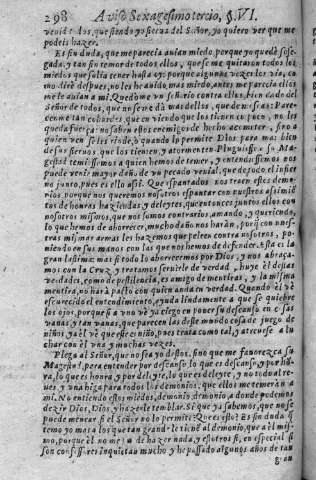 298 Aviso Sexagesimotercio, §. VI.
venid todos, que siendo yo sierua del Señor, yo quiero ver que me
podeis hazer.
Es sin duda, que me parecia auian miedo, porque yo quedè sose-
gada, y tan sin temor de todos ellos, que se me quitaron todos los
miedos que solia tener hasta oy: porque aunque vezes los via, co-
mo dirè despues, no les he auido mas miedo, antes me parecia ellos
me le auian a mi. Quedòme vn señorio contra ellos, bien dado del
Señor de todos, que no se me dà mas dellos, que de moscas. Pare-
cenme tan cobardes, que en viendo que los tienen en poco, no les
queda fuerça: no saben estos enemigos de hecho acometer, sino a
quien ven se les rinde, ò quando lo permite Dios para mas bien
de sus sieruos que los tienten, y atormenten. Pluguiesse a su Ma-
gestad temiessemos a quien hemos de temer, y entendiessemos nos
puede venir mayor daño de vn pecado venial, que de todo el infier
no junto, pues es ello assi. Que espantados nos traen estos demo-
nios porque nos queremos nosotros espantar con nuestros asimien-
tos de honras, haziendas, y deleytes, que entonces juntos ellos con
nosotros mismos, que nos somos contrarios, amando, y queriendo,
lo que hemos de aborrecer, mucho daño nos haràn, porque con nues-
tras mismas armas les hazemos que peleen contra nosotros, po-
niendo en sus manos con las que nos hemos de defender. Esta es la
gran lastima: mas si todo lo aborrecemos por Dios, y nos abraça-
mos con la Cruz, y tratamos seruirle de verdad, huye èl destas
verdades, como de pestilencia, es amigo de mentiras, y la misma
mentira, no harà pacto con quien anda en verdad. Quando èl vè
escurecido el entendimiento, ayuda lindamente a que se quiebre
los ojos, porque si a vno vè ya ciego en poner su descanso en cosas
vanas, y tan vanas, que parecen las deste mundo cosa de juego de
niños, ya èl vè que este es niño, pues trata como tal, y atreuese a lu
char con èl vna y muchas vezes.
Plega al Señor, que no sea yo destos, sino que me fauorezca su
Magestad, para entender por descanso lo que es descanso, y por hon-
ra, lo que es honra, y por deleyte, lo que es deleyte, y no todo al re-
ues, y vna higa para todos los demonios, que ellos me temeràn a
mi. No entiendo estos miedos, demonio, demonio, a donde podemos
dezir Dios, Dios, y hazerle temblar. Si que ya sabemos, que no se
puede menear si el Señor no lo permite. Que es esto? Es sin duda que
temo yo mas a los que tan grande le tienen al demonio, que a èl mis-
mo, porque èl no me puede hazer nada, y estotros si, en especial si
son confessores inquietan mucho, y he passado algunos años de tan
gran